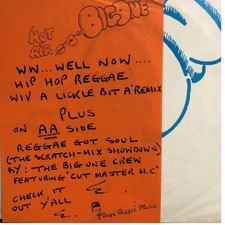 HOT
AIR
BIG ONE
WW...WELL NOW....
HIP HOP REGGAE
WIV A LICKLE BIT A' REMIX
PLUS
ON AA SIDE
REGGAE GOT SOUL
(THE SCRATCH-MIX SHOWDOWN)
BY: THE BIG ONE CREW
FEATURING 'CUT MASTER M.C'
CHECK IT
OUT Y'ALL